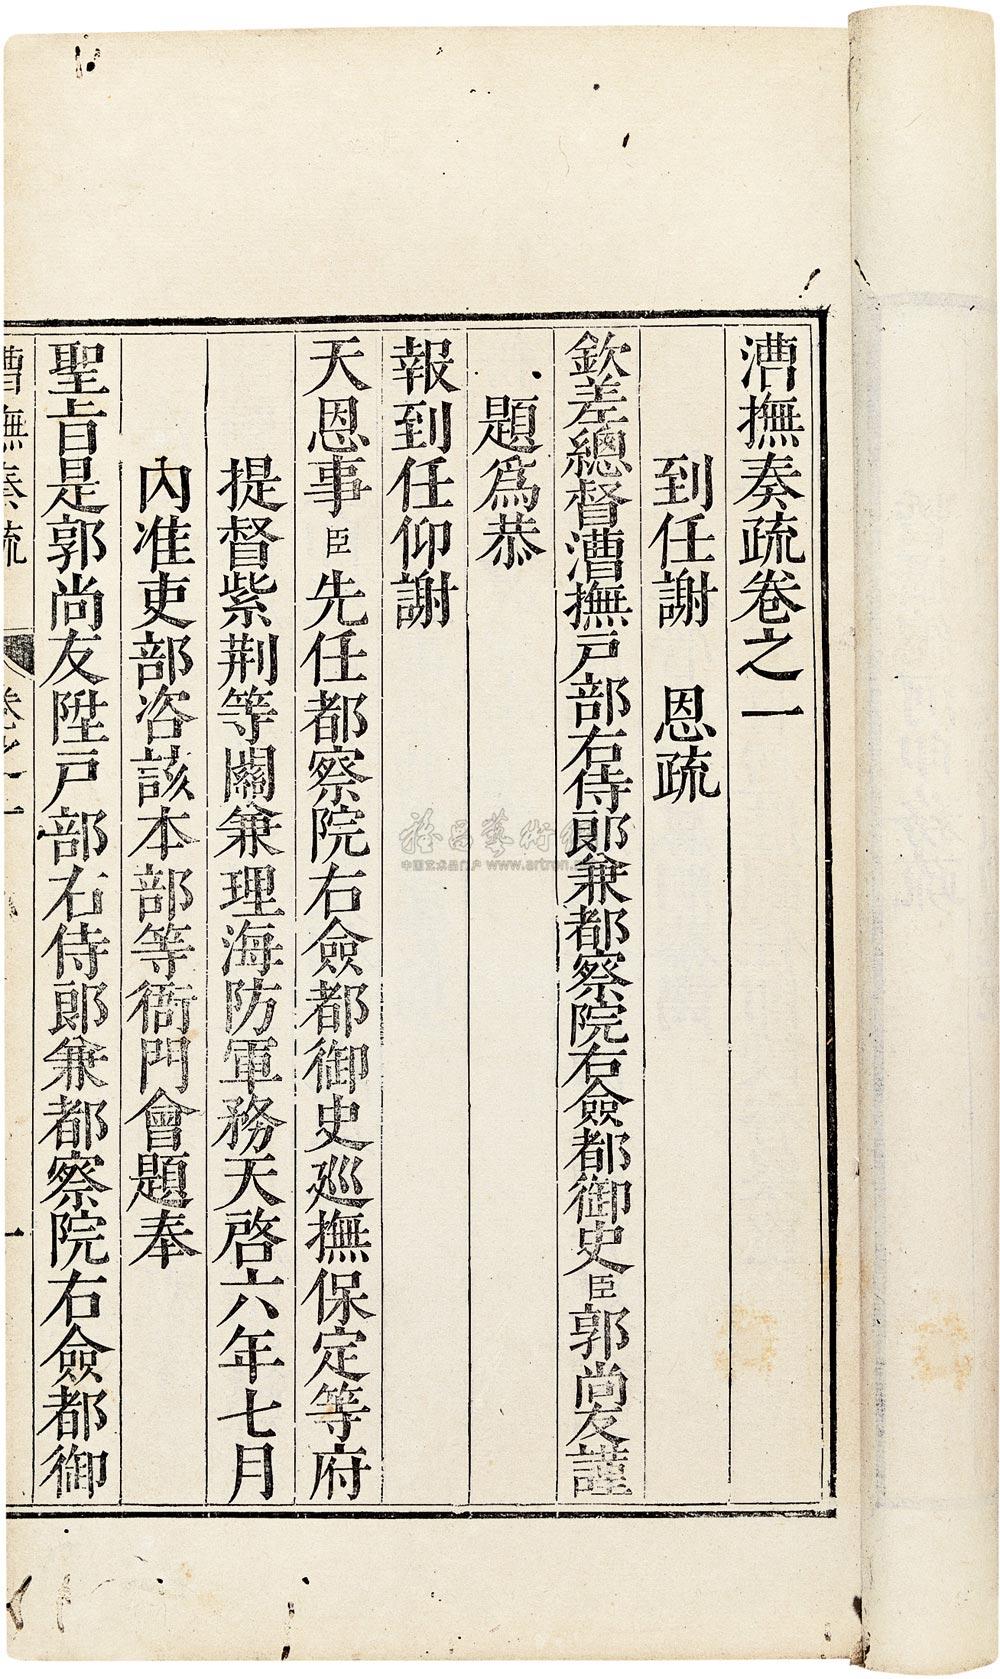 漕撫奏疏卷之一
到任謝　恩疏
欽差總督漕撫戶部右侍郞兼都察院右僉都御史臣郭尚友謹
題爲恭
報到任仰謝
天恩事臣先任都察院右僉都御史廵撫保定等府
提督紫荆等關兼理海防軍務天啓六年七月
內准吏部咨該本部等衙門會題奉
聖旨是郭尚友陞戶部右侍郞兼都察院右僉都御
漕撫奏疏　卷之一　一
中国艺术品门户 www.artron.net